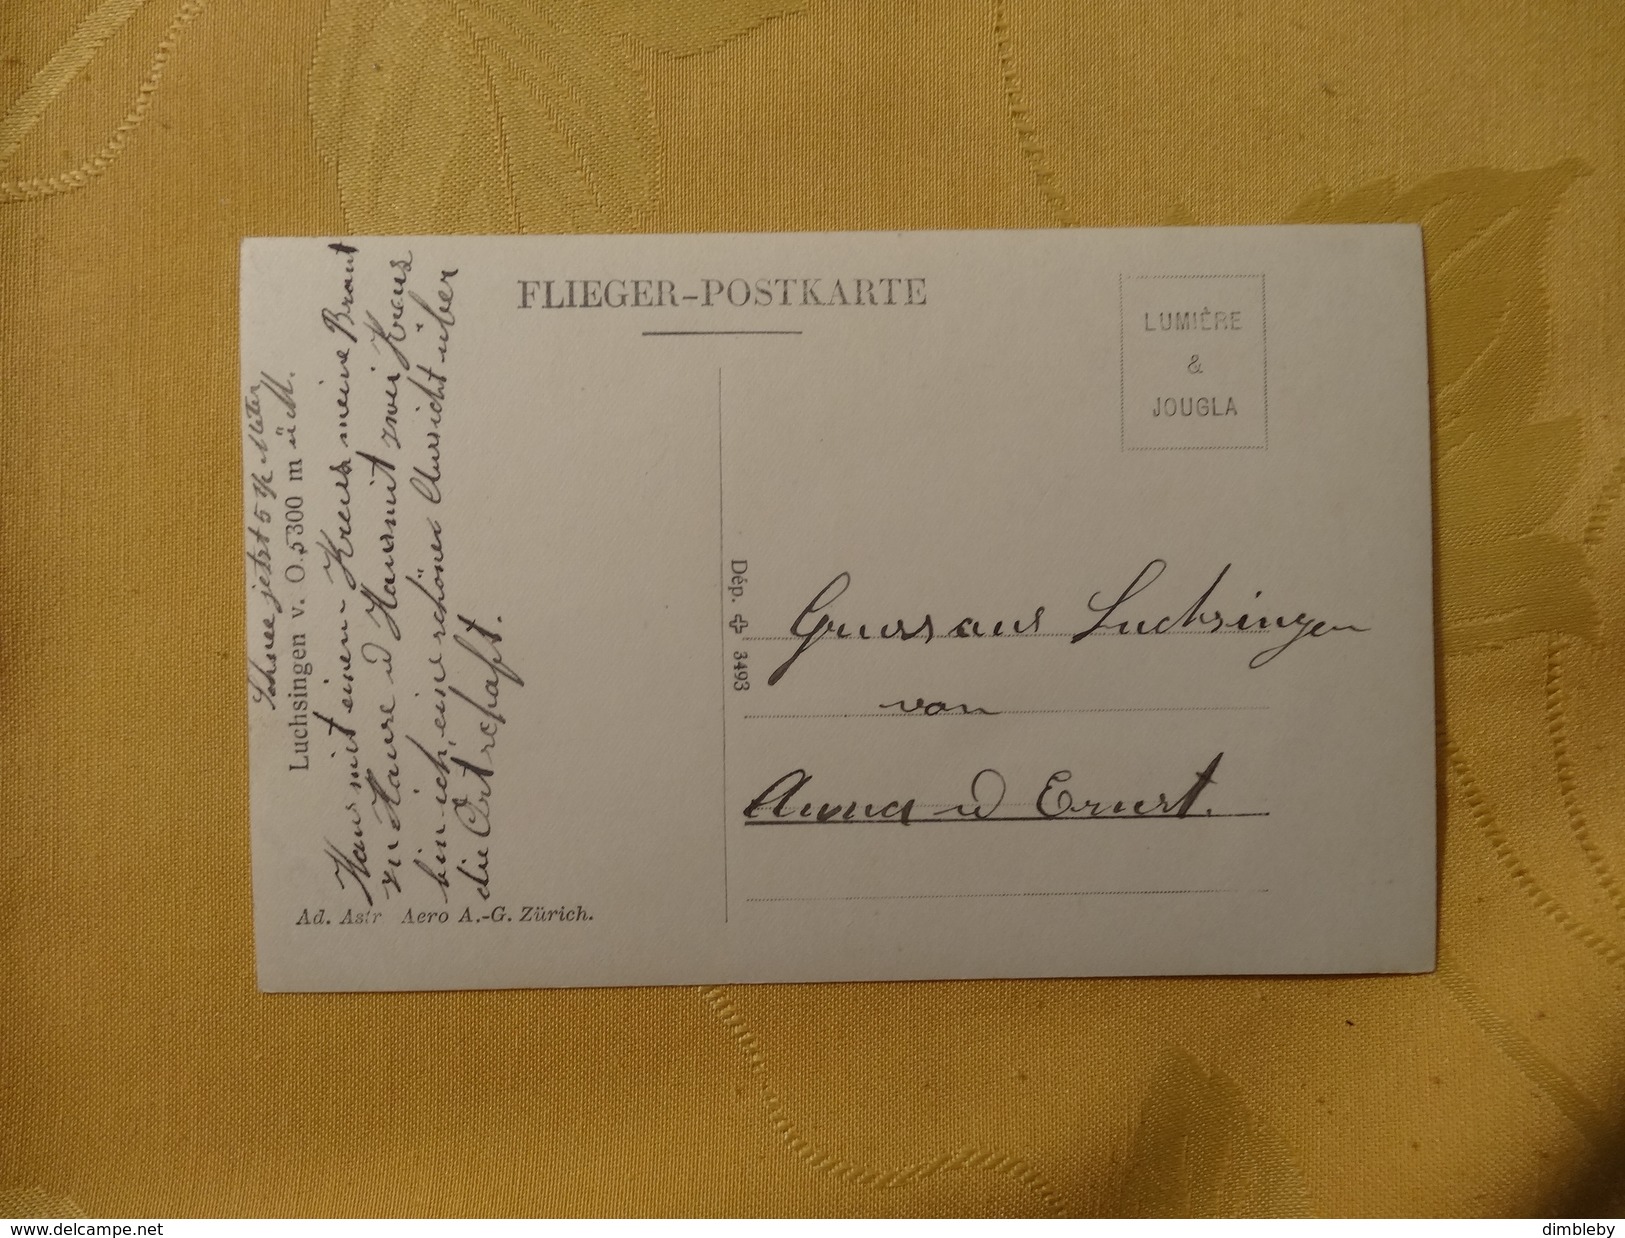 FLIEGER-POSTKARTE
LUMIÈRE
&
JOUGLA
Schnee jetzt 5 ½ Meter
Luchsingen v. O. 5300 m ü M.
Haus mit einem Kreuss meine Braut
zu Hause u Haus mit zwei Kreus
bin ich, eine schönes Aussicht über
die Ortschaft.
Dép. ✚ 3493
Gruss aus Luchsingen
von
Anna u Ernst.
Ad. Astr Aero A.-G. Zürich.
delcampe.net
dimbleby